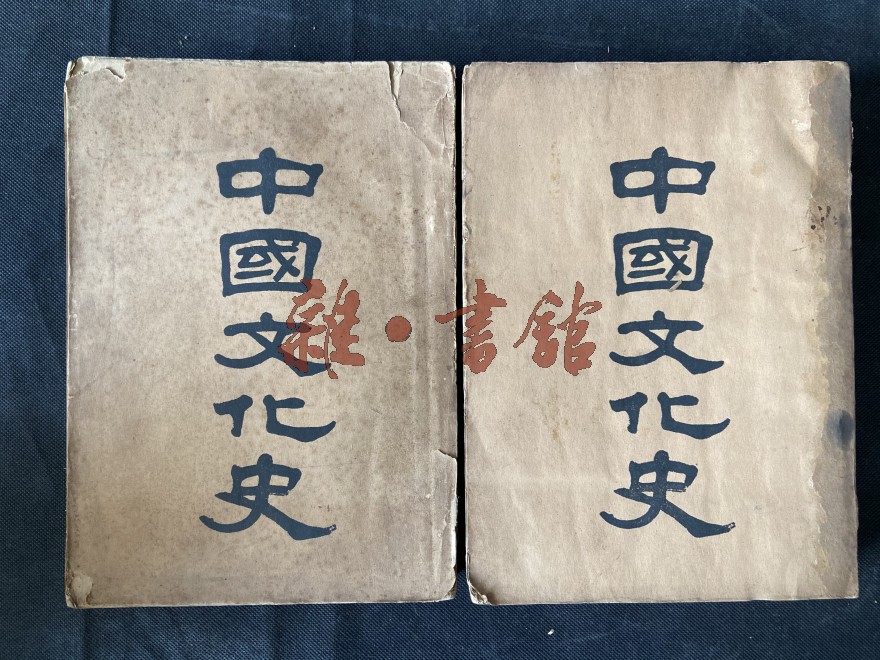 中國文化史
中國文化史
雜·書舘